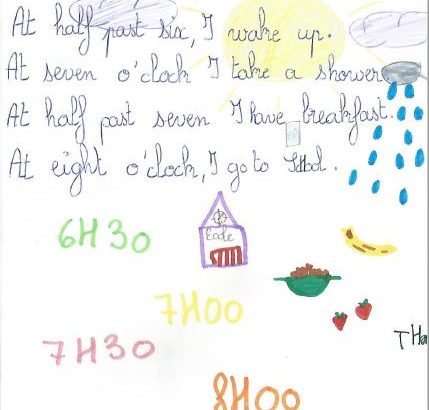 At half past six, I wake up.
At seven o'clock I take a shower
At half past seven I have breakfast.
At eight o'clock, I go to School.
Ecole
6H30
7H00
7H30
8H00